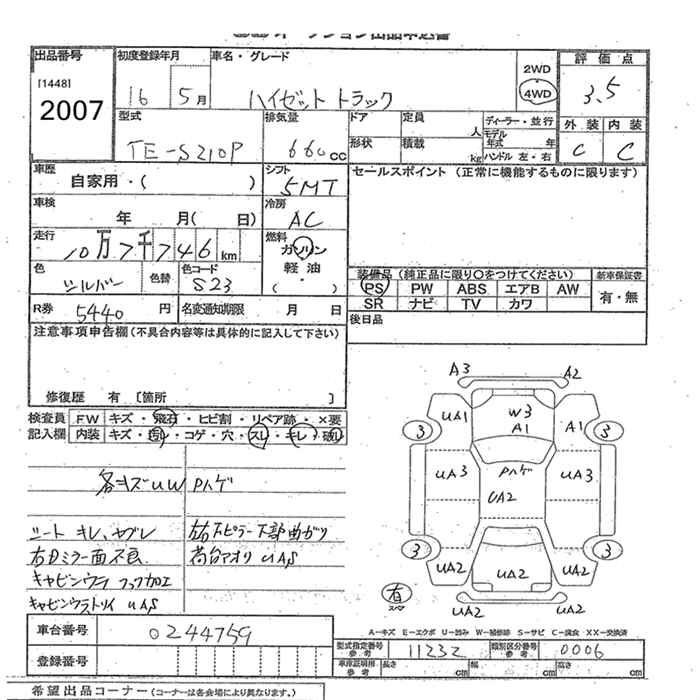 出品番号 初度登録年月 車名・グレード 評価点
[1448]
2007
16 5月 ハイゼットトラック 2WD 4WD 3.5
型式 排気量 ドア 定員 人 ディーラー・並行 外装 内装
モデル年式 年
TE-S210P 660cc 形状 積載 kg ハンドル 左・右 C C
車歴 シフト セールスポイント (正常に機能するものに限ります)
自家用・( ) 5MT
車検 冷房
年 月( 日) AC
走行 燃料
10万7千746km ガソリン
色 色替 色コード 軽油 装備品 (純正品に限り○をつけてください) 新車保証書
シルバー S23 ・( ) PS PW ABS エアB AW 有・無
R券 5440円 名変通知期限 月 日 SR ナビ TV カワ
注意事項申告欄(不具合内容等は具体的に記入して下さい) 後日品
修復歴 有 [箇所 ]
検査員 FW キズ・飛石・ヒビ割・リペア跡・×要
記入欄 内装 キズ・汚レ・コゲ・穴・スレ・キレ・破レ
各キズUW Pハゲ
シート キレ、ヤブレ 左右下ピラー下部曲ガリ
右Dミラー面不良 荷台アオリ UAS
キャビンウラ フック加工
キャビンウラストリイ UAS
A3 A2
UA1 W3 A1 A1
3 3
UA3 Pハゲ UA3
UA2
3 3
UA2 UA2 UA2
有
UA2 UA2
A-キズ E-エクボ U-凹み W-補修跡 S-サビ C-腐食 XX-交換済
車台番号 0244759
型式指定番号 参考 11232 類別区分番号 参考 0006
登録番号 車庫証明用 参考 長さ cm 幅 cm 高さ cm
希望出品コーナー (コーナーは各会場により異なります。)